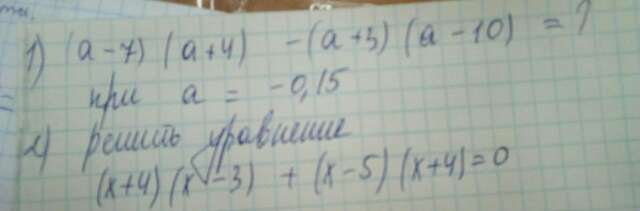 1) (a-7) (a+4) - (a+3) (a-10) = ?
при a = -0,15
2) решить уравнение
(x+4) (x-3) + (x-5) (x+4) = 0